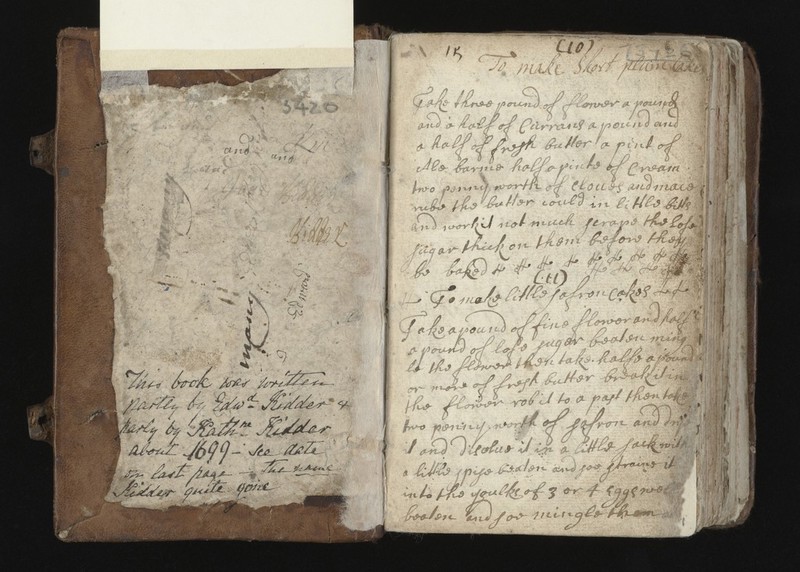 5420
and
and
many
Kidder
Edward
many
This book was written
partly by Edwd. Kidder &
parly by Kathne Kidder
about 1699 - see date
on last page - the name
Kidder quite gone
15
(10)
To make short plum cakes
Take three pound of flower a pound
and a half of Currans a pound and
a half of fresh butter a pint of
Ale barme half a pinte of Cream
two penny worth of Cloves and mace
rube the butter could in little bits
and work it not much scrape the lofe
sugar thick on them before they
be baked
(11)
To make little safron cakes
Take a pound of fine flower and half
a pound of lofe sugar beaten
to the flower then take halfe a pound
or more of fresh butter break it in
the flower rob it to a past then take
two penny worth of safron and dry
it and disolve it in a little sack with
a little spise beaten and soe straine it
into the youlks of 3 or 4 eggs wel
beaten and soe mingle them